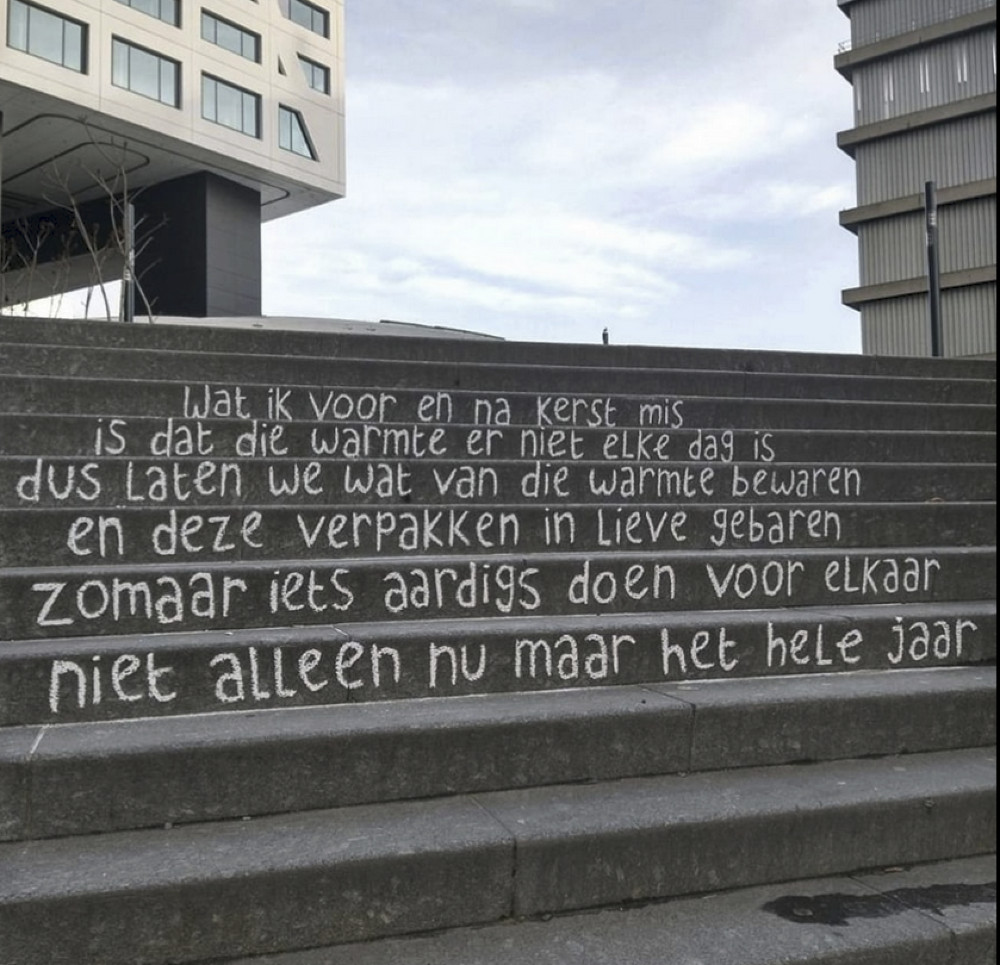 Wat ik voor en na kerst mis
is dat die warmte er niet elke dag is
dus laten we wat van die warmte bewaren
en deze verpakken in lieve gebaren
zomaar iets aardigs doen voor elkaar
niet alleen nu maar het hele jaar